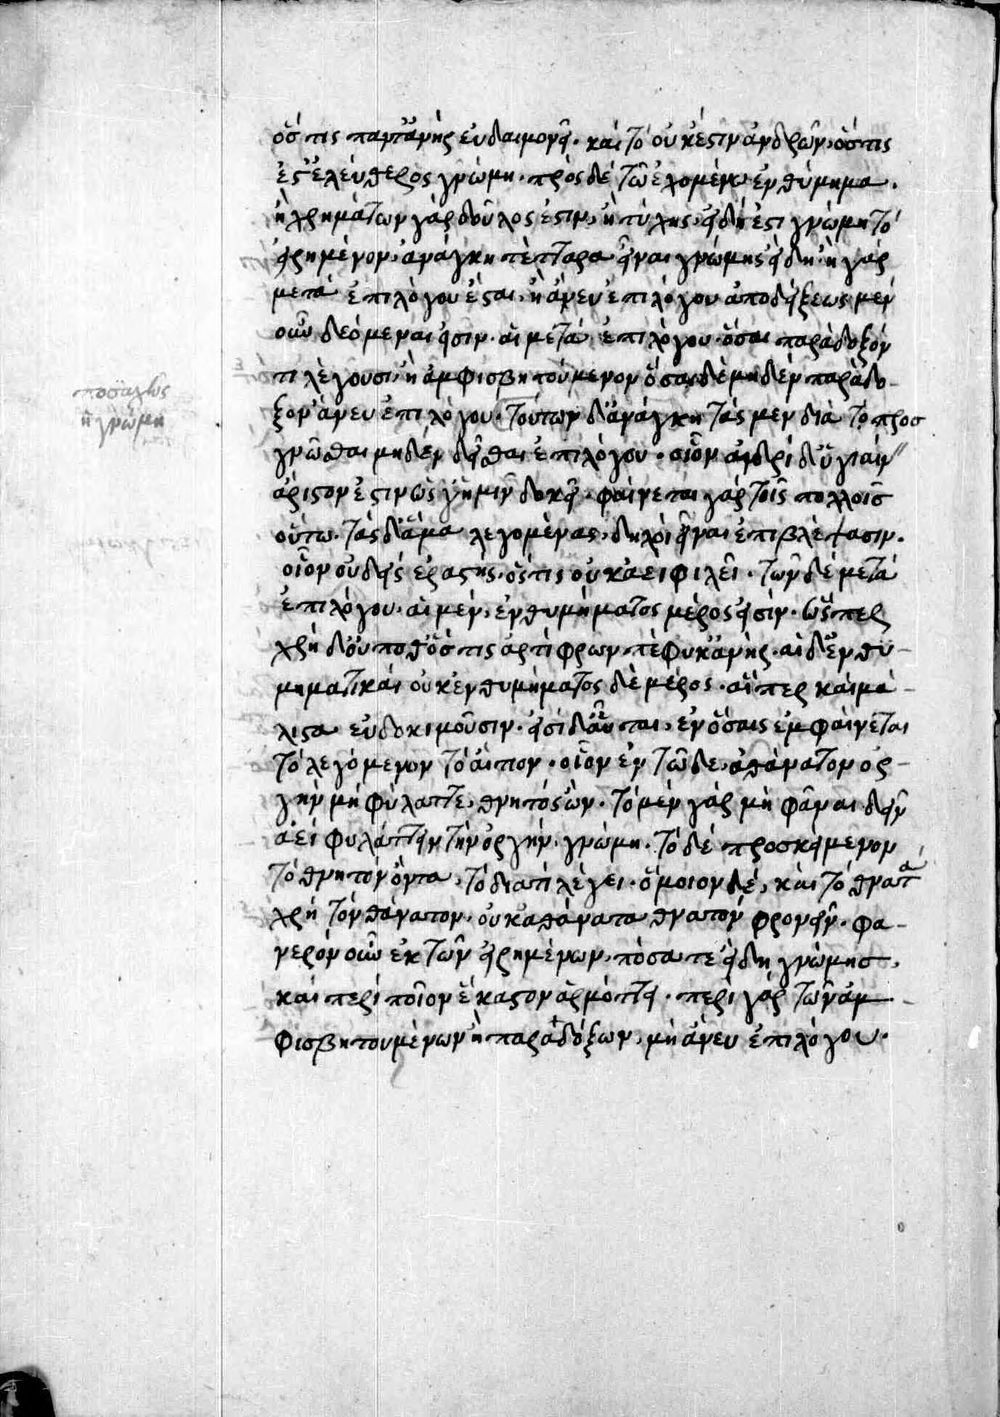 ὅς τις πάντ' ἀνὴρ εὐδαιμονεῖ. καὶ τὸ οὐκ ἔστιν ἀνδρῶν, ὅς τις
ἐστ' ἐλεύθερος γνώμη. πρὸς δὲ τῶ ἐχομένω ἐνθύμημα.
ἢ χρημάτων γὰρ δοῦλος ἐστιν, ἢ τύχης, εἰ δή ἐστι γνώμη τὸ
εἰρημένον, ἀνάγκη τέτταρα εἶναι γνώμης εἴδη. ἢ γὰρ
μετὰ ἐπιλόγου ἔσται, ἢ ἄνευ ἐπιλόγου ἀποδείξεως μὲν
οὖν δεόμεναι εἰσιν. αἱ μετὰ ἐπιλόγου. ὅσαι παράδοξόν
τι λέγουσι, ἢ ἀμφισβητούμενον ὅσαι δὲ μηδὲν παράδο-
ξον ἄνευ ἐπιλόγου. τούτων δ' ἀνάγκη τὰς μὲν διὰ τὸ προσ
γνῶσθαι μηδὲν δεῖσθαι ἐπιλόγου. οἷον ἀνδρὶ δ' ὑγιαίν
ἄριστον ἐστιν ὥς γ' ἡμῖν δοκεῖ. φαίνεται γὰρ τοῖς πολλοῖς
οὕτω. τὰς δ' ἅμα λεγομένας, δηλοι εἶναι ἐπιβλέψασιν.
οἷον οὐδεὶς ἐραστὴς, ὅς τις οὐκ ἀεὶ φιλεῖ. τῶν δὲ μετὰ
ἐπιλόγου. αἱ μὲν, ἐνθυμήματος μέρος εἰσίν. ὥσπερ
χρὴ δ' οὔποθ' ὅς τις ἀρτίφρων πέφυκ' ἀνὴρ. αἱ δ' ἐνθυ-
μηματικαὶ οὐκ ἐνθυμήματος δὲ μέρος. αἵπερ καὶ μά-
λιστα εὐδοκιμοῦσιν. εἰσὶ δ' αὗται, ἐν ὅσαις ἐμφαίνεται
τὸ λεγόμενον τὸ αἴτιον. οἷον ἐν τῶδε, ἀθάνατον ὀρ-
γὴν μὴ φύλαττε, θνητὸς ὤν. τὸ μὲν γὰρ μὴ φᾶναι δεῖν
ἀεὶ φυλάττειν τὴν ὀργὴν, γνώμη. τὸ δὲ προσκείμενον
τὸ θνητὸν ὄντα, τὸ διατί λέγει. ὅμοιον δέ, καὶ τὸ θνατὰ
χρὴ τὸν θάνατον, οὐκ ἀθάνατα θνατὸν φρονεῖν. φα-
νερὸν οὖν ἐκ τῶν εἰρημένων, πόσα τε εἴδη γνώμης,
καὶ περὶ ποῖον ἕκαστον ἁρμόττει. περὶ γὰρ τῶν ἀμ-
φισβητουμένων ἢ παραδόξων, μὴ ἄνευ ἐπιλόγου.
ποσαχῶς
ἡ γνώμη